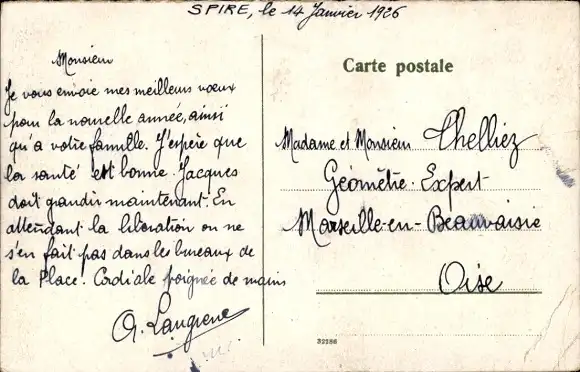 SPIRE, le 14 Janvier 1926
Monsieur
Je vous envoie mes meilleurs voeux
pour la nouvelle année, ainsi
qu'à votre famille. J'espère que
la santé est bonne. Jacques
doit grandir maintenant. En
attendant la libération on ne
s'en fait pas dans les bureaux de
la Place. Cordiale poignée de mains
Carte postale
Madame et Monsieur Thelliez
Géomètre-Expert
Marseille-en-Beauvaisie
Oise
32186